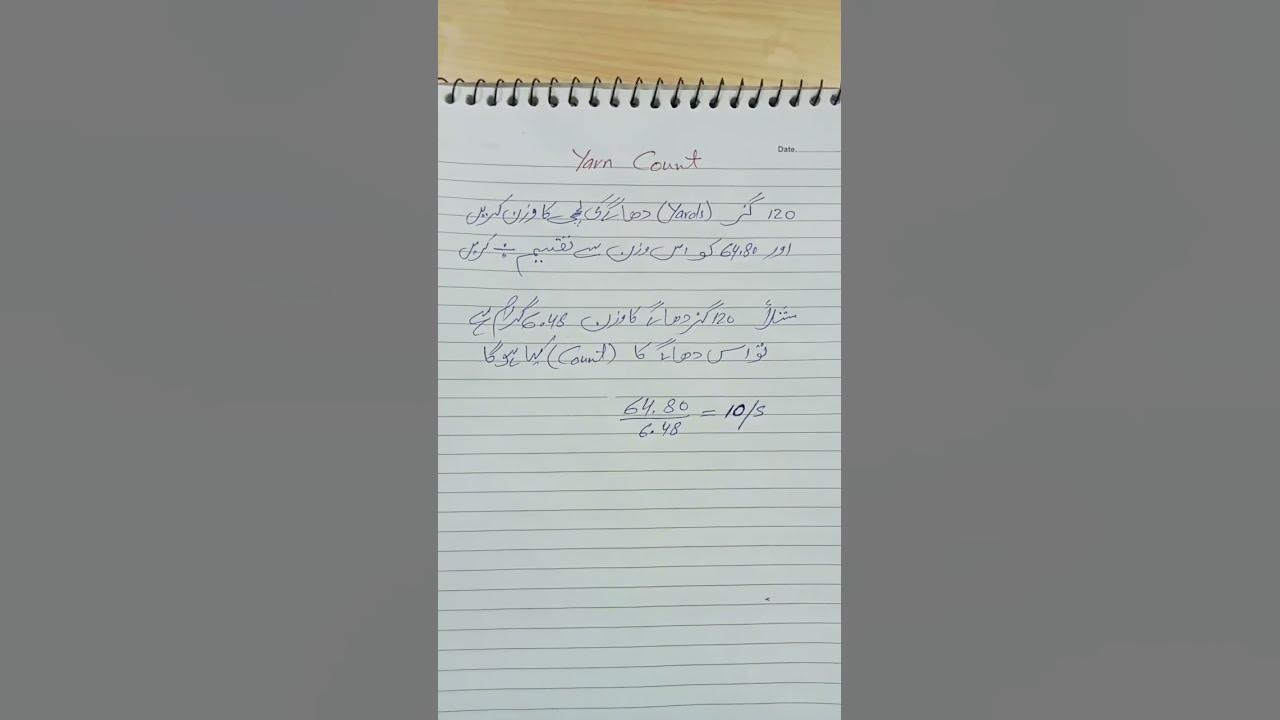 Date.
Yarn Count
120 گز (Yards) دھاگے کی لچھی کا وزن کریں
اور 64.80 کو اس وزن سے تقسیم ÷ کریں
مثلاً 120 گز دھاگے کا وزن 6.48 گرام ہے
تو اس دھاگے کا (Count) کیا ہوگا
64.80
6.48
= 10/s